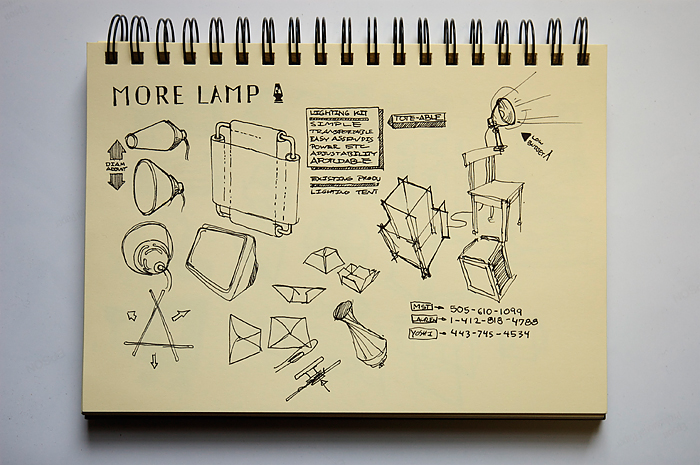 MORE LAMP
LIGHTING KIT
SIMPLE
TRANSFERABLE
EASY ASSEM/DIS
POWER ETC
ADJUSTABILITY
AFORDABLE
EXISTING PRODU
LIGHTING TENT
TOTE-ABLE!
LOW
DIAM
ADJUST
MST → 505-610-1099
LAUREN → 1-412-818-4788
YOSHI → 443-745-4534